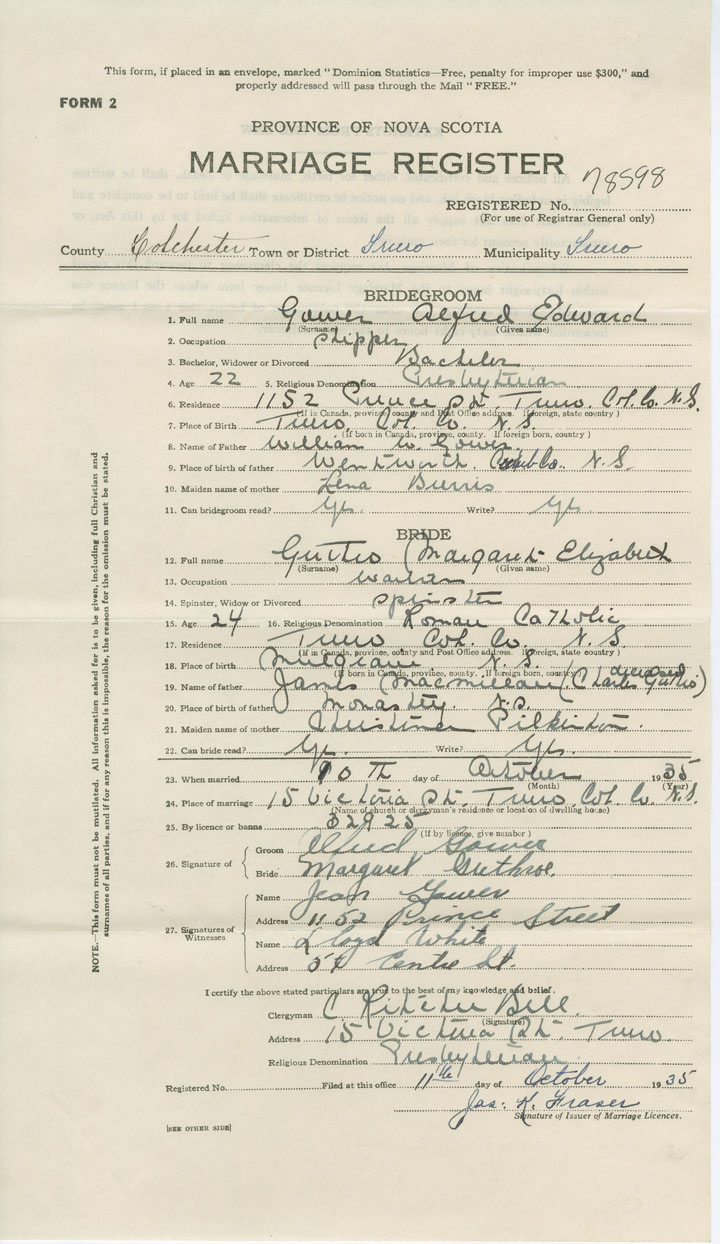 This form, if placed in an envelope, marked "Dominion Statistics—Free, penalty for improper use $300," and
properly addressed will pass through the Mail "FREE."
FORM 2
PROVINCE OF NOVA SCOTIA
MARRIAGE REGISTER
78598
REGISTERED No.
(For use of Registrar General only)
County Colchester Town or District Truro Municipality Truro
BRIDEGROOM
1. Full name Gower Alfred Edward
(Surname) (Given name)
2. Occupation Shipper
3. Bachelor, Widower or Divorced Bachelor
4. Age 22 5. Religious Denomination Presbyterian
6. Residence 1152 Prince St. Truro, Col. Co. N.S.
(If in Canada, province, county and Post Office address. If foreign, state country)
7. Place of Birth Truro, Col. Co. N.S.
(If born in Canada, province, county. If foreign born, country)
8. Name of Father William W. Gower
9. Place of birth of father Wentworth Cumb Co. N.S.
10. Maiden name of mother Lena Burris
11. Can bridegroom read? Yes. Write? Yes.
BRIDE
12. Full name Guthro Margaret Elizabeth
(Surname) (Given name)
13. Occupation
14. Spinster, Widow or Divorced Spinster
15. Age 24 16. Religious Denomination Roman Catholic
17. Residence Truro Col. Co. N.S.
(If in Canada, province, county and Post Office address. If foreign, state country)
18. Place of birth Mulgrave N.S.
(If born in Canada, province, county. If foreign born, country)
19. Name of father James Macmillan (Charles Guthro) deceased
20. Place of birth of father Monastery. N.S.
21. Maiden name of mother Christina Pilkinton.
22. Can bride read? Yes. Write? Yes.
23. When married 10th day of October 1935
(Month) (Year)
24. Place of marriage 15 Victoria St. Truro Col. Co. N.S.
(Name of church or clergyman's residence or location of dwelling house)
25. By licence or banns 32925
(If by licence, give number)
26. Signature of
Groom Alfred Gower
Bride Margaret Guthroe
27. Signatures of Witnesses
Name Jean Gower
Address 1152 Prince Street
Name Lloyd White
Address 54 Centre St.
I certify the above stated particulars are true to the best of my knowledge and belief.
Clergyman C Ritchie Bell
(Signature)
Address 15 Victoria St. Truro
Religious Denomination Presbyterian
Registered No. Filed at this office 11th day of October 1935
Jas. K. Fraser
Signature of Issuer of Marriage Licences.
[SEE OTHER SIDE]
NOTE.—This form must not be mutilated. All information asked for is to be given, including full Christian and
surnames of all parties, and if for any reason this is impossible, the reason for the omission must be stated.